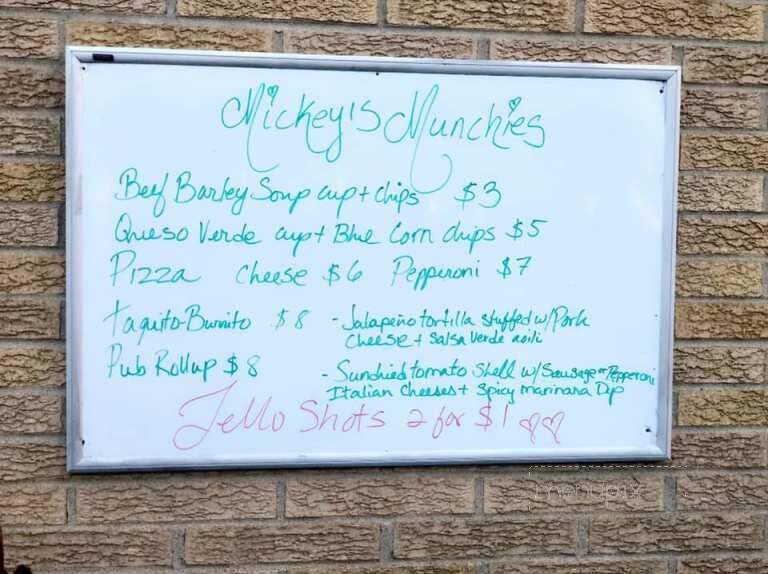 Mickey's Munchies
Beef Barley Soup cup + chips $3
Queso Verde cup + Blue Corn chips $5
Pizza Cheese $6 Pepperoni $7
Taquito-Burrito $8 - Jalapeño tortilla stuffed w/ Pork
Cheese + Salsa Verde aoili
Pub Rollup $8 - Sundried tomato Shell w/ Sausage or Pepperoni
Italian Cheeses + Spicy marinara Dip
Jello Shots 2 for $1
menupix